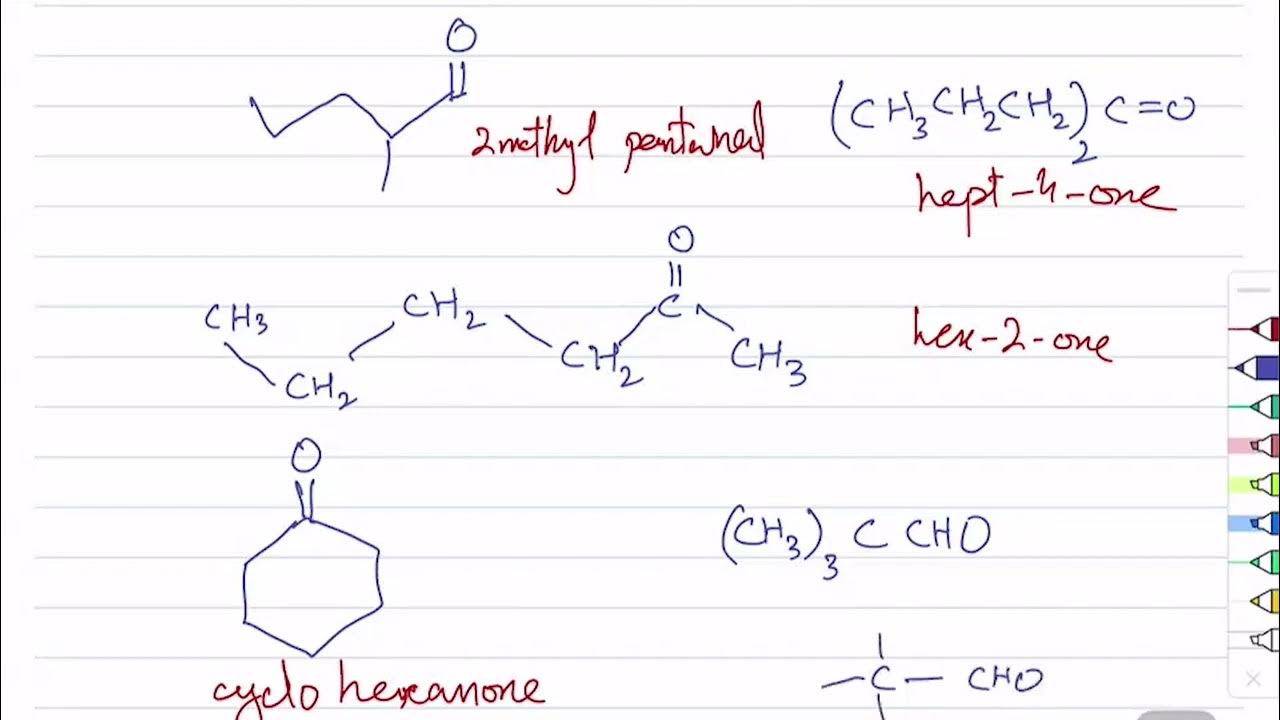 O
2 methyl pentanal
(CH₃CH₂CH₂)₂ C=O
hept-4-one
O
CH₃ CH₂ CH₂ CH₂ C CH₃
hex-2-one
O
(CH₃)₃ C CHO
cyclo hexanone
C — CHO